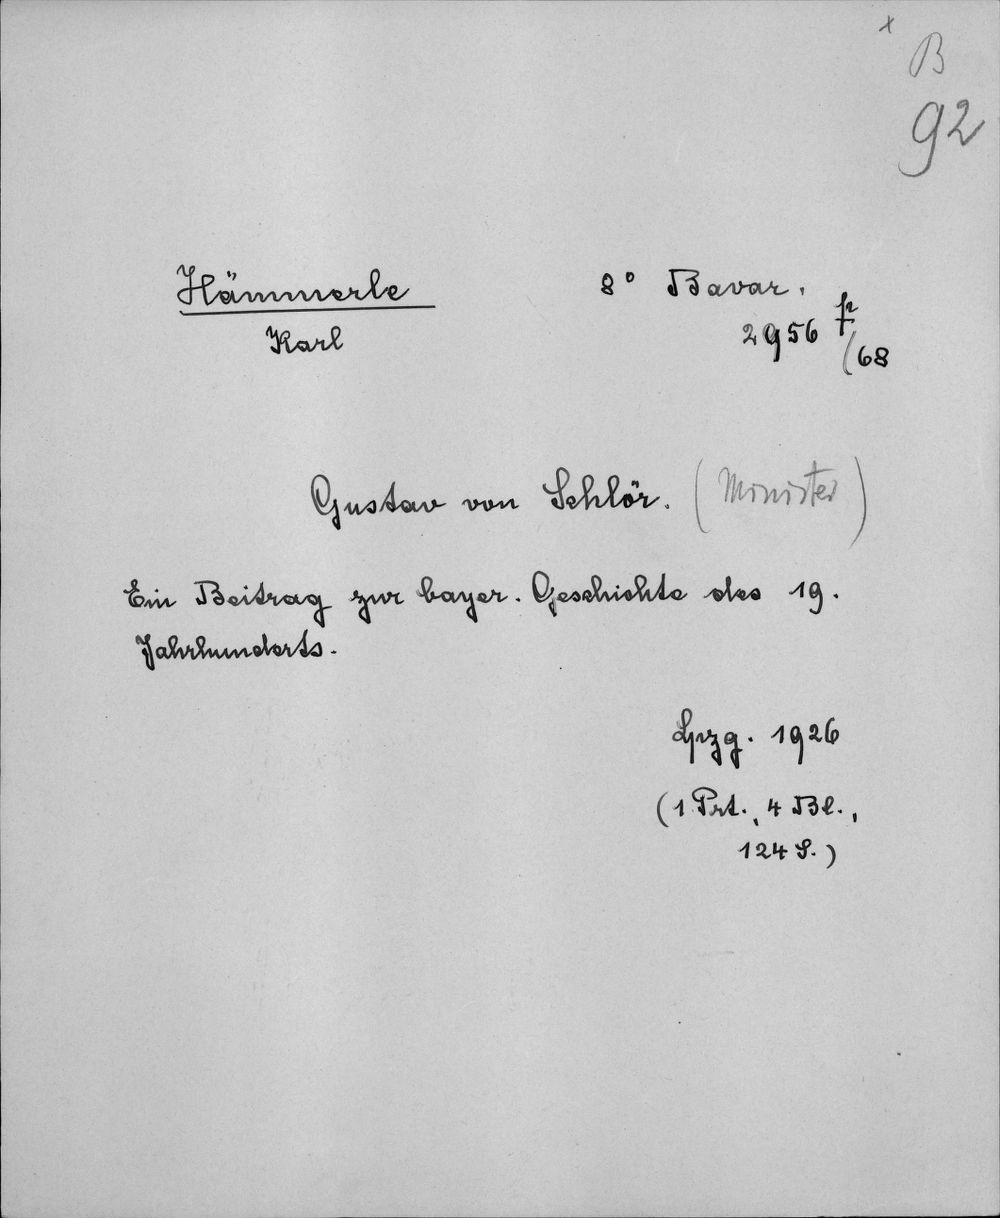 x
B
92
Hämmerle
Karl
8° Bavar.
2956 /68
Gustav von Schlör. (Minister)
Ein Beitrag zur bayer. Geschichte des 19.
Jahrhunderts.
Lpzg. 1926
(1 Prt., 4 Bl.,
124 S.)